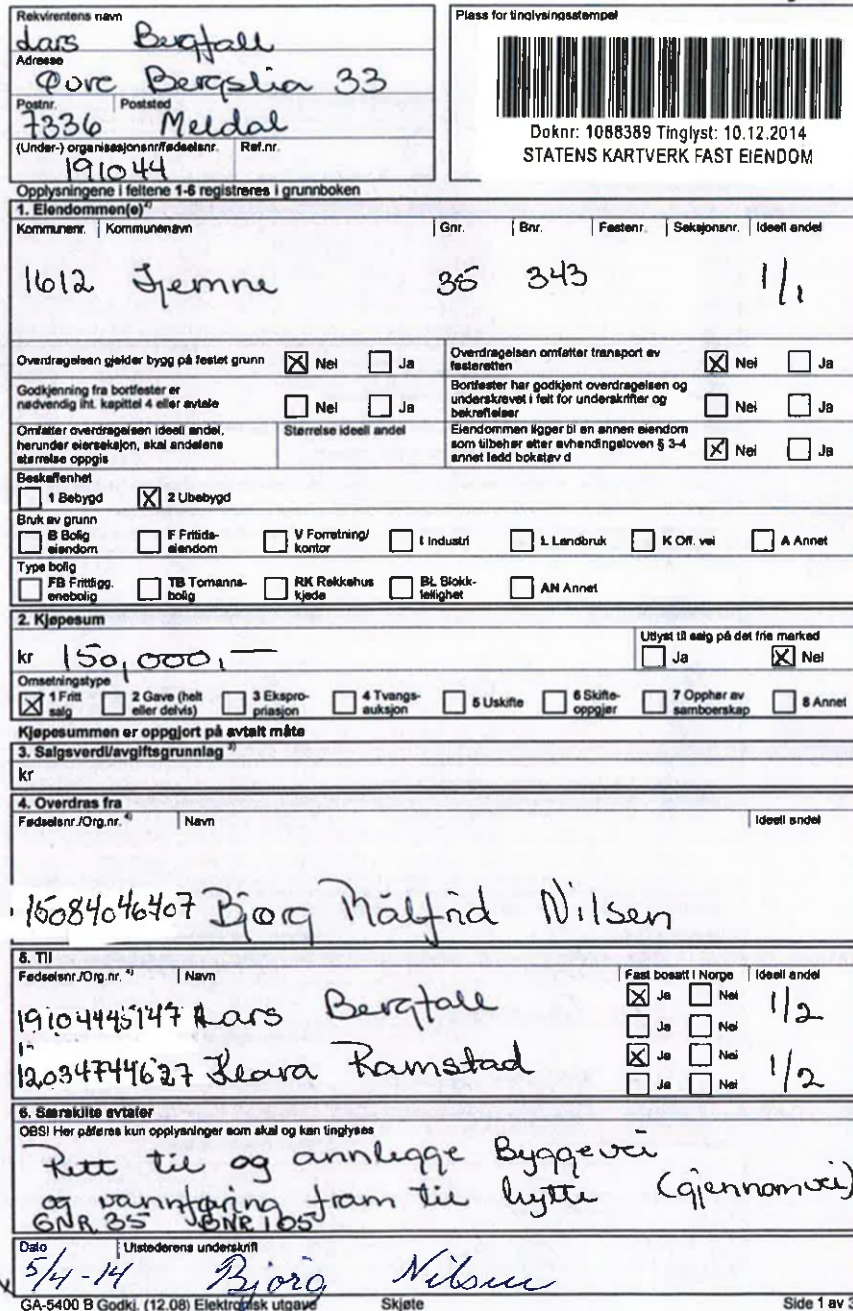 Rekvirentens navn
Lars Bergfall
Adresse
Øvre Bergslia 33
Postnr. Poststed
7336 Meldal
(Under-) organisasjonsnr/fødselsnr. Ref.nr.
191044
Plass for tinglysingsstempel
Doknr: 1088389 Tinglyst: 10.12.2014
STATENS KARTVERK FAST EIENDOM
Opplysningene i feltene 1-6 registreres i grunnboken
1. Eiendommen(e) 2)
Kommunenr. Kommunenavn Gnr. Bnr. Festenr. Seksjonsnr. Ideell andel
1612 Hemne 35 343 1/1
Overdragelsen gjelder bygg på festet grunn Nei Ja
Overdragelsen omfatter transport av festeretten Nei Ja
Godkjenning fra bortfester er
nødvendig iht. kapittel 4 eller avtale Nei Ja
Bortfester har godkjent overdragelsen og
underskrevet i felt for underskrifter og
bekreftelser Nei Ja
Omfatter overdragelsen ideell andel,
herunder eierseksjon, skal andelens
størrelse oppgis
Størrelse ideell andel
Eiendommen ligger til en annen eiendom
som tilbehør etter avhendingsloven § 3-4
annet ledd bokstav d Nei Ja
Beskaffenhet
1 Bebygd 2 Ubebygd
Bruk av grunn
B Bolig eiendom F Fritids- eiendom V Forretning/ kontor I Industri L Landbruk K Off. vei A Annet
Type bolig
FB Frittligg. enebolig TB Tomanns- bolig RK Rekkehus kjede BL Blokk- leilighet AN Annet
2. Kjøpesum
kr 150,000,-
Utlyst til salg på det frie marked
Ja Nei
Omsetningstype
1 Fritt salg 2 Gave (helt eller delvis) 3 Ekspro- priasjon 4 Tvangs- auksjon 5 Uskifte 6 Skifte- oppgjør 7 Opphør av samboerskap 8 Annet
Kjøpesummen er oppgjort på avtalt måte
3. Salgsverdi/avgiftsgrunnlag 3)
kr
4. Overdras fra
Fødselsnr./Org.nr. 4) Navn Ideell andel
15084046407 Bjørg Målfrid Nilsen
5. Til
Fødselsnr./Org.nr. 4) Navn Fast bosatt i Norge Ideell andel
19104445147 Lars Bergfall Ja Nei 1/2
Ja Nei
12034744627 Klara Ramstad Ja Nei 1/2
Ja Nei
6. Særskilte avtaler
OBS! Her påføres kun opplysninger som skal og kan tinglyses
Rett til og annlegge Byggevei
og vannføring fram til hytte (gjennomvei)
GNR 35 BNR 105
Dato Utstederens underskrift
5/4-14 Bjørg Nilsen
GA-5400 B Godkj. (12.08) Elektronisk utgave Skjøte Side 1 av 3